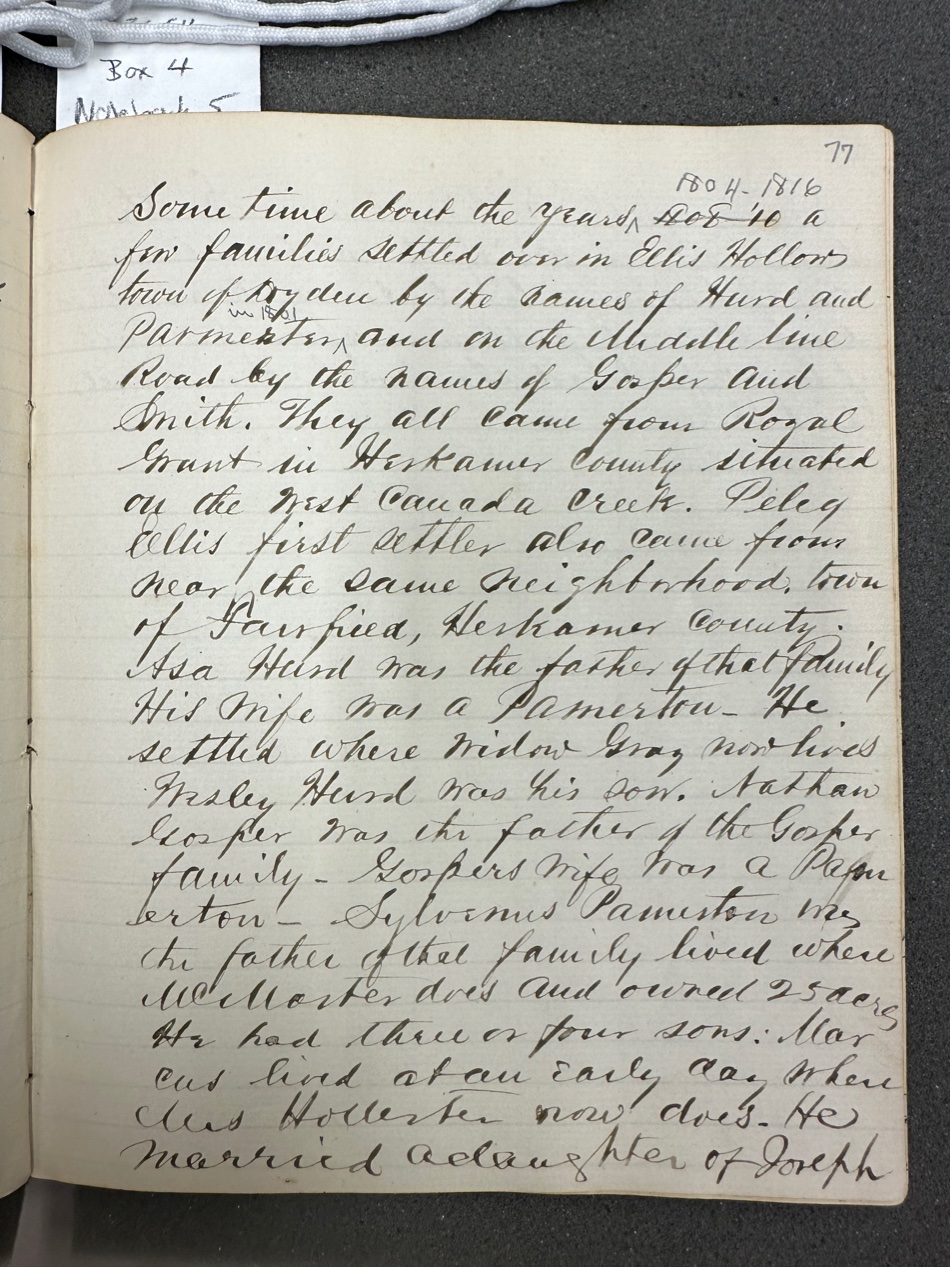 Box 4
Notebook 5
77
1804-1816
Some time about the years, 808 '10 a
few families settled over in Ellis Hollow
town of Dryden by the names of Hurd and
in 1801
Parmerter, and on the Middle line
Road by the names of Gosper and
Smith. They all came from Royal
Grant in Herkamer county situated
on the West Canada Creek. Peleg
Ellis first settler also came from
near the same neighborhood, town
of Fairfied, Herkamer County.
Asa Hurd was the father of that family
His Wife was a Pamerton - He
settled where Widow Gray now lives
Wesley Hurd was his son. Nathan
Gosper was the father of the Gosper
family - Gospers Wife was a Pam
erton - Sylvenus Pamerton was
the father of that family lived where
McMaster does and owned 25 acres
He had three or four sons: Mar
cus lived at an Early day where
Mrs Hollester now does. He
married a daughter of Joseph